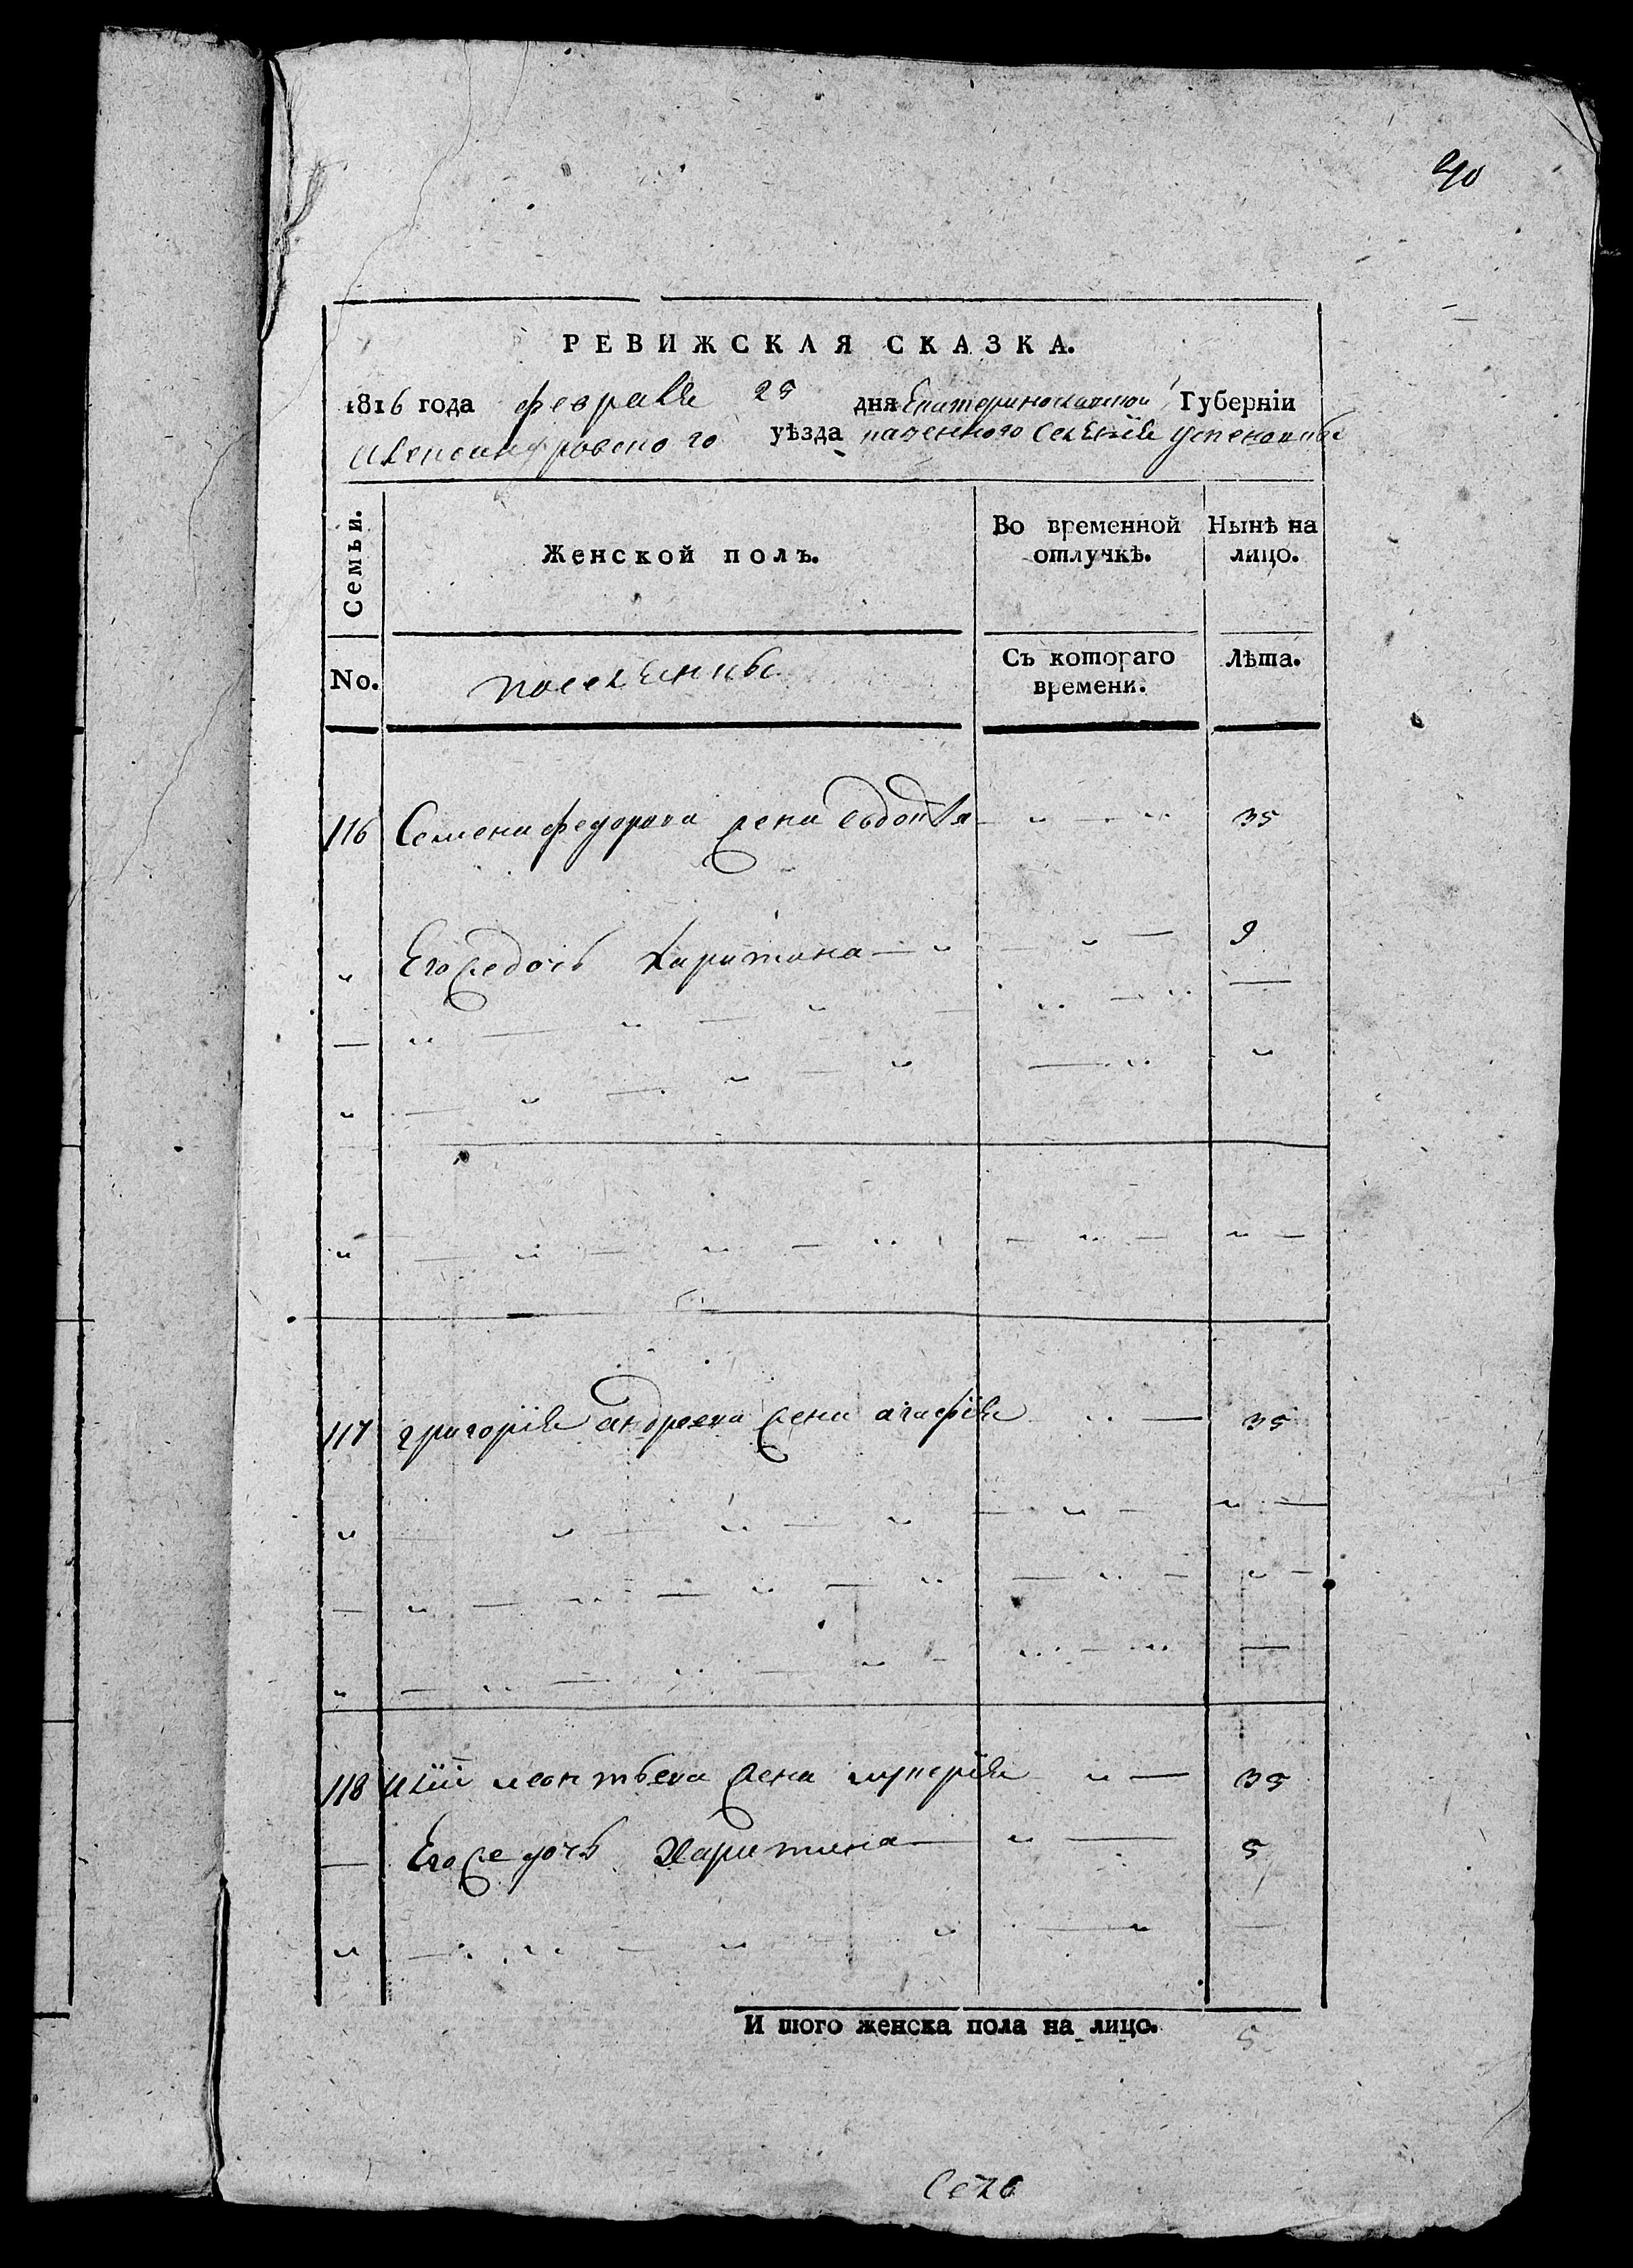 40
РЕВИЖСКАЯ СКАЗКА.
1816 года февраля 25 дня Екатеринославской Губерніи
Александровского уѣзда казенного селенія Успеновки
Семьи.
Женской полъ.
Во временной отлучкѣ.
Нынѣ на лицо.
No.
поселенцы
Съ котораго времени.
Лѣта.
116 Семена федорова жена Евдокѣя 35
Его же дочь Харитина 9
117 григорія андреева жена агафія 35
118 иліи леонтьева жена лукерія 35
Его же дочь Харитина 5
И того женска пола на лицо. 5